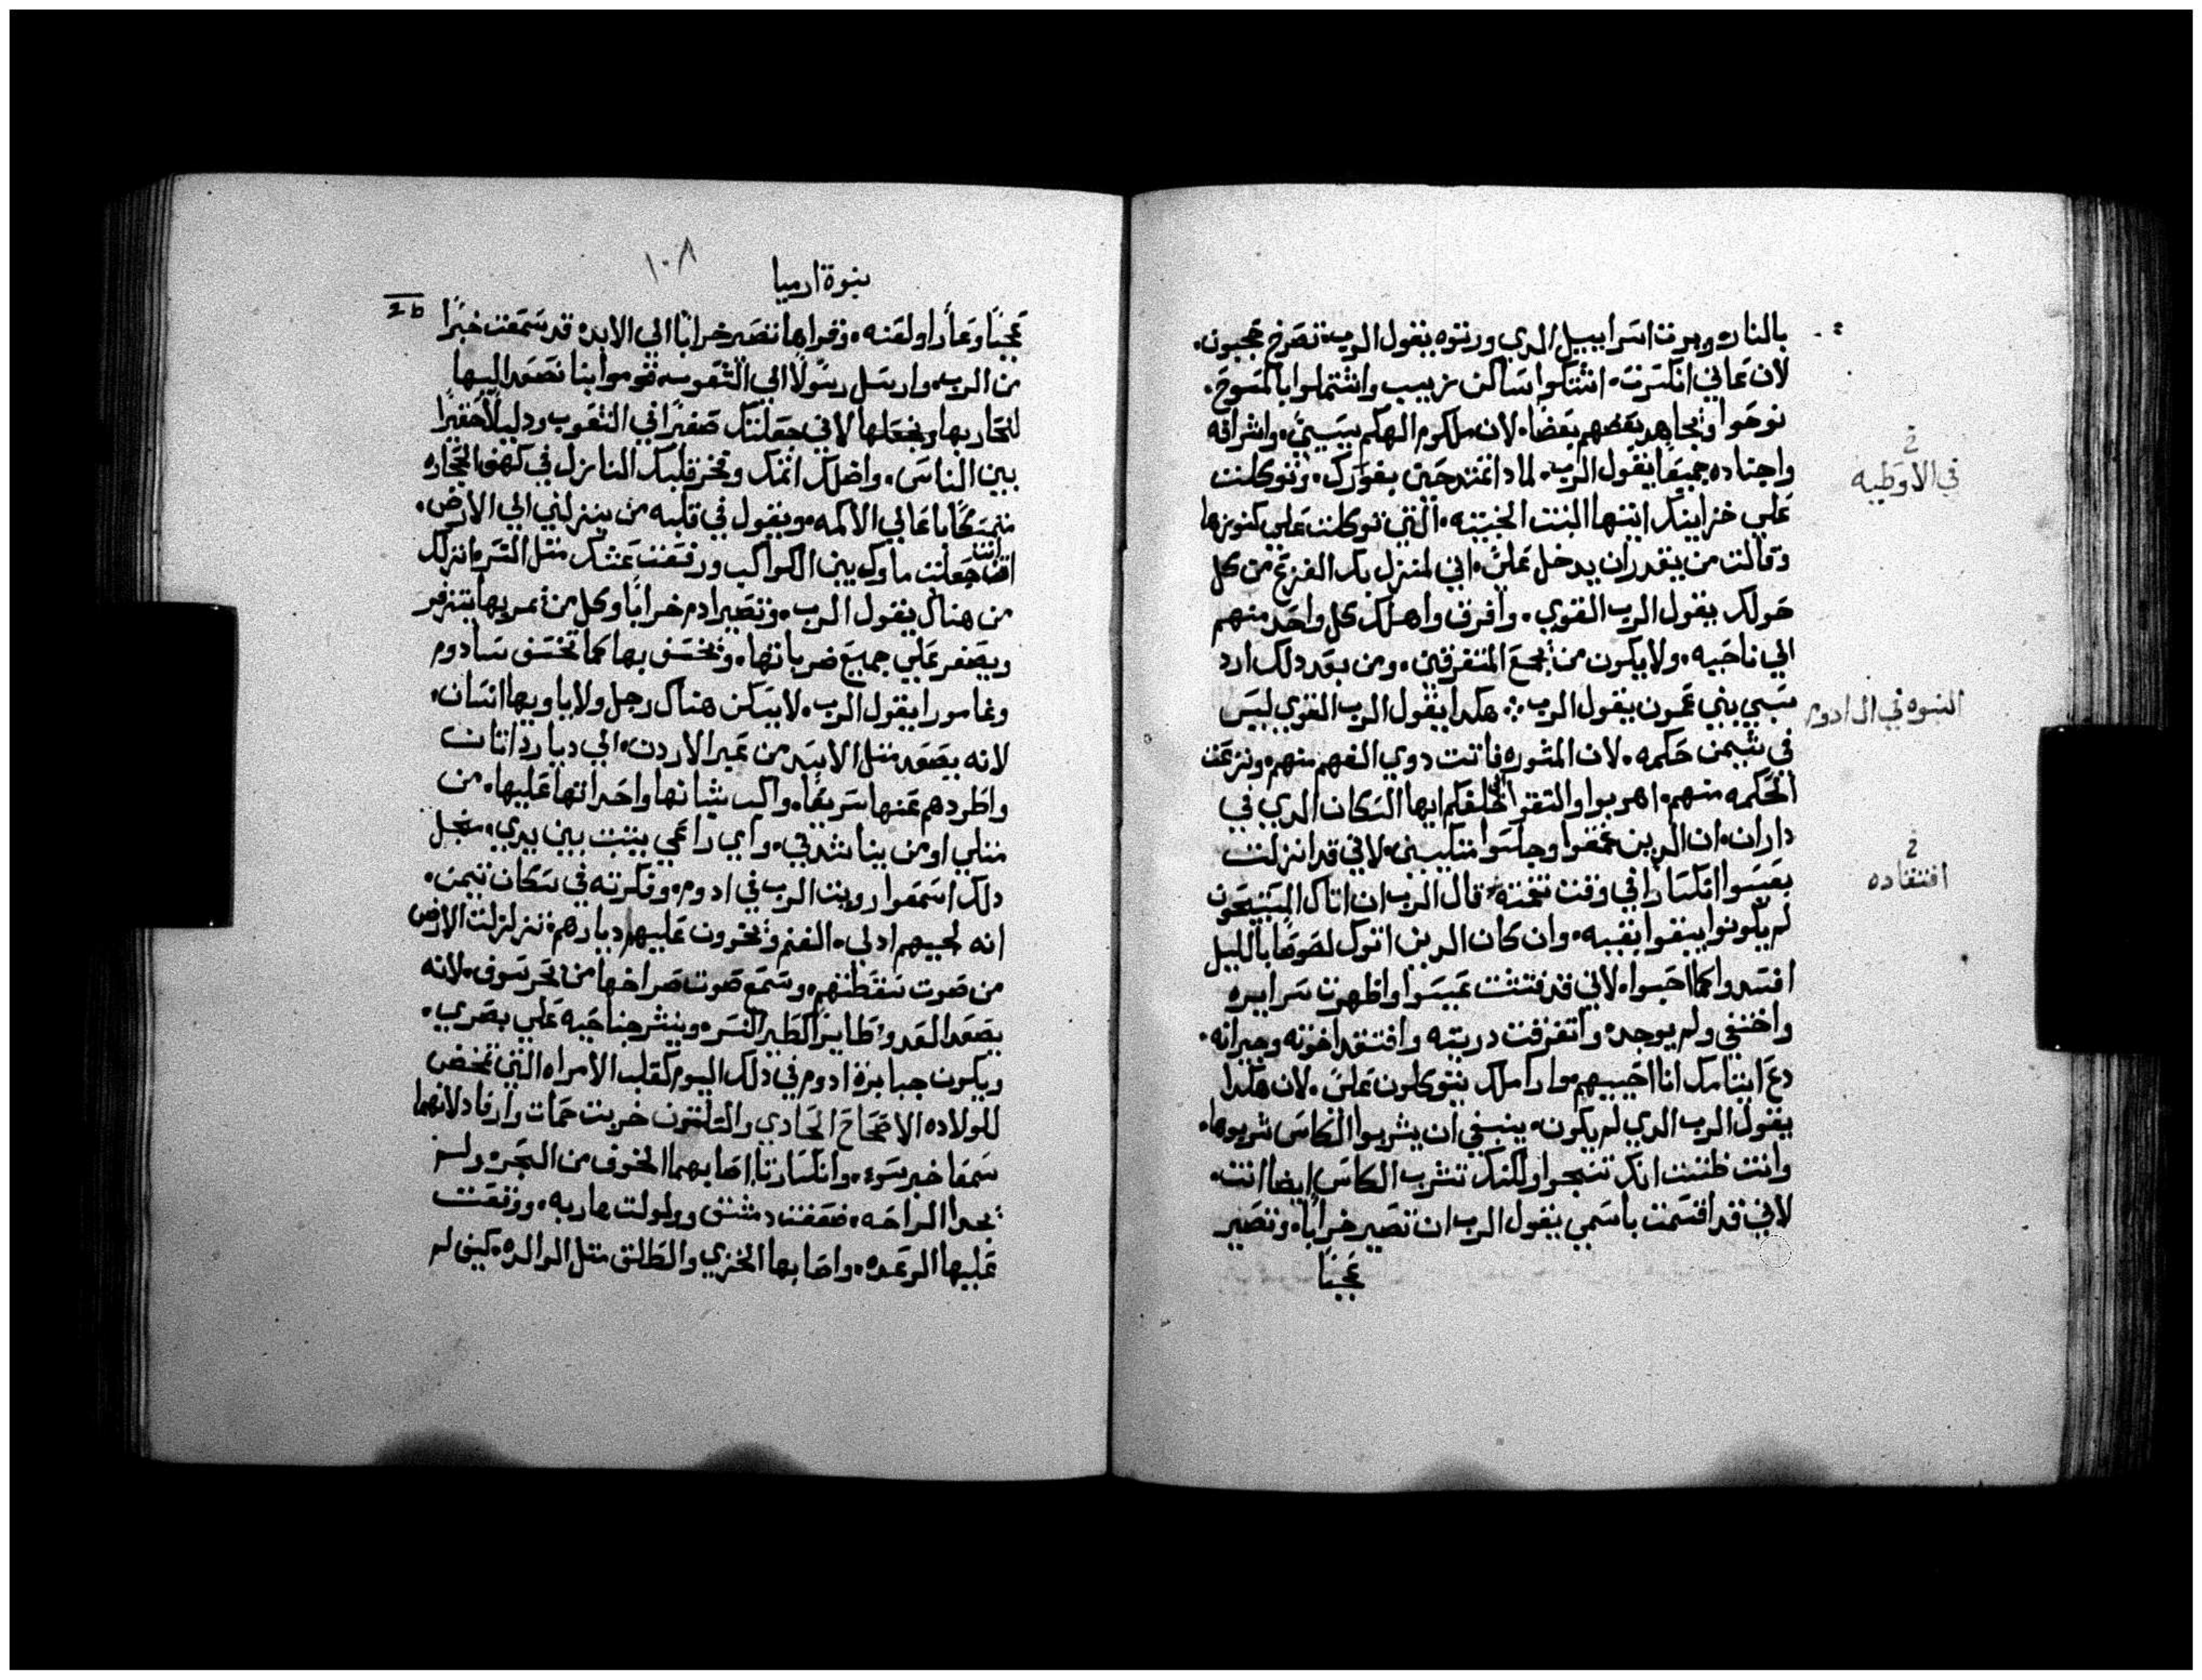 بالنار، ويرث اسراييل الدي ورتوه يقول الرب، تصرخ عجبون،
لان عاني انكسرت، اشتكوا ساكن زبيب واشتملوا بالمسوح،
نوحوا وتجاهد بعضهم بعضا، لان ملكوم الهكم يسبيَ، واشرافه
واجناده جميعا يقول الرب، لمادا تمتدحين بغورك، وتوكلت
علي خزاينك ايتها البنت الخبيثه، التي توكلت علي كنوزها
وقالت من يقدر ان يدخل عليَ، اني لمنزل بك الفزع من كل
حولك يقول الرب القوي، وافرق واهلك كل واحد منهم
الي ناحيه، ولا يكون من يجمع المتفرقين، ومن بعد دلك ارد
سبي بني عمون يقول الرب ؞ هكدا يقول الرب القوي ليس
في تيمن حكمه، لان المشوره فاتت دوي الفهم منهم، ونزعت
الحكمه منهم، اهربوا والتفتوا الي خلفكم ايها السكان الدي في
داران، ان الدين عمقوا وجلسوا متكيين، لاني قد انزلت
بعيسوا انكسارا في وقت نقمته، قال الرب ان اتاك المبتيحون
لم يكونوا يبقوا بقيه، وان كان الدين اتوك لصوصا بالليل
افسدوا كما احبوا، لاني قد فتشت عيسوا واظهرت سرايره
واختفي ولم يوجد، واتفرقت دريته وافتقد اخوته وجيرانه،
دع ايتامك انا احييهم واراملك يتوكلون عليَ، لان هكدا
يقول الرب الدي لم يكون، ينبغي ان يشربوا الكاس شربوها،
وانت ظننت انك تنجوا ولكنك تشرب الكاس ايضا انت،
لاني قد اقسمت باسمي يقول الرب ان تصير خرابًا، وتصير
عجبًا
في الاوطيه
النبوه في ال ادوم
افتقاده
١٠٨
نبوة ارميا
عجبًا وعارًا ولعنه، وقراها تصير خرابًا الي الابد، قد سمعت خبرًا
من الرب، وارسل رسولًا الي الشعوب، قوموا بنا نصعد اليها
لنحاربها ونجعلها لاني جعلتك صغيرًا في الشعوب ودليلًا حقيرًا
بين الناس، واضلك اتمك وفخر قلبك النازل في كهف الحجاره
متمسكًا باعالي الاكمه، ويقول في قلبه من ينزلني الي الارض،
انت جعلت ماوك بين الكواكب ورفعت عشك متل النسر، انزلك
من هناك يقول الرب، وتصير ادم خرابًا وكل من يمر بها يتزفر
ويصفر علي جميع ضرباتها، وتخسف بها كما تخسف سادوم
وغامورا يقول الرب، لا يسكن هناك رجل ولا ياويها انسان،
لانه يصعد متل الاسد من عبر الاردن، الي ديار داتان
واطردهم عنها سريعًا، واكب شبانها واحداتها عليها، من
متلي او من يناشدني، واي راعي يتبت بين يدي، من اجل
دلك اسمعوا رويت الرب في ادوم، وفكرته في سكان تيمن،
انه لجيبهم ادلي، الغنم ويخرون عليهم ديارهم، تزلزلت الارض
من صوت سقطتهم، وسمع صوت صراخها من بحر سوف، لانه
يصعد العدو طايرًا كطير النسر، وينشر جناحيه علي بصري،
ويكون جبابرة ادوم في دلك اليوم كقلب الامراه التي تمخض
للولاده الاصحاح الحادي والتلتون خربت حمات وارفاد لانهما
سمعا خبر سوء، وانكسارتا، اصابهما الخوف من البحر، ولم
يجدا الراحه، ضعفت دمشق وولولت هاربه، ووقعت
عليها الرعده، واصابها الخزي والطلق متل الوالده، كيف لم